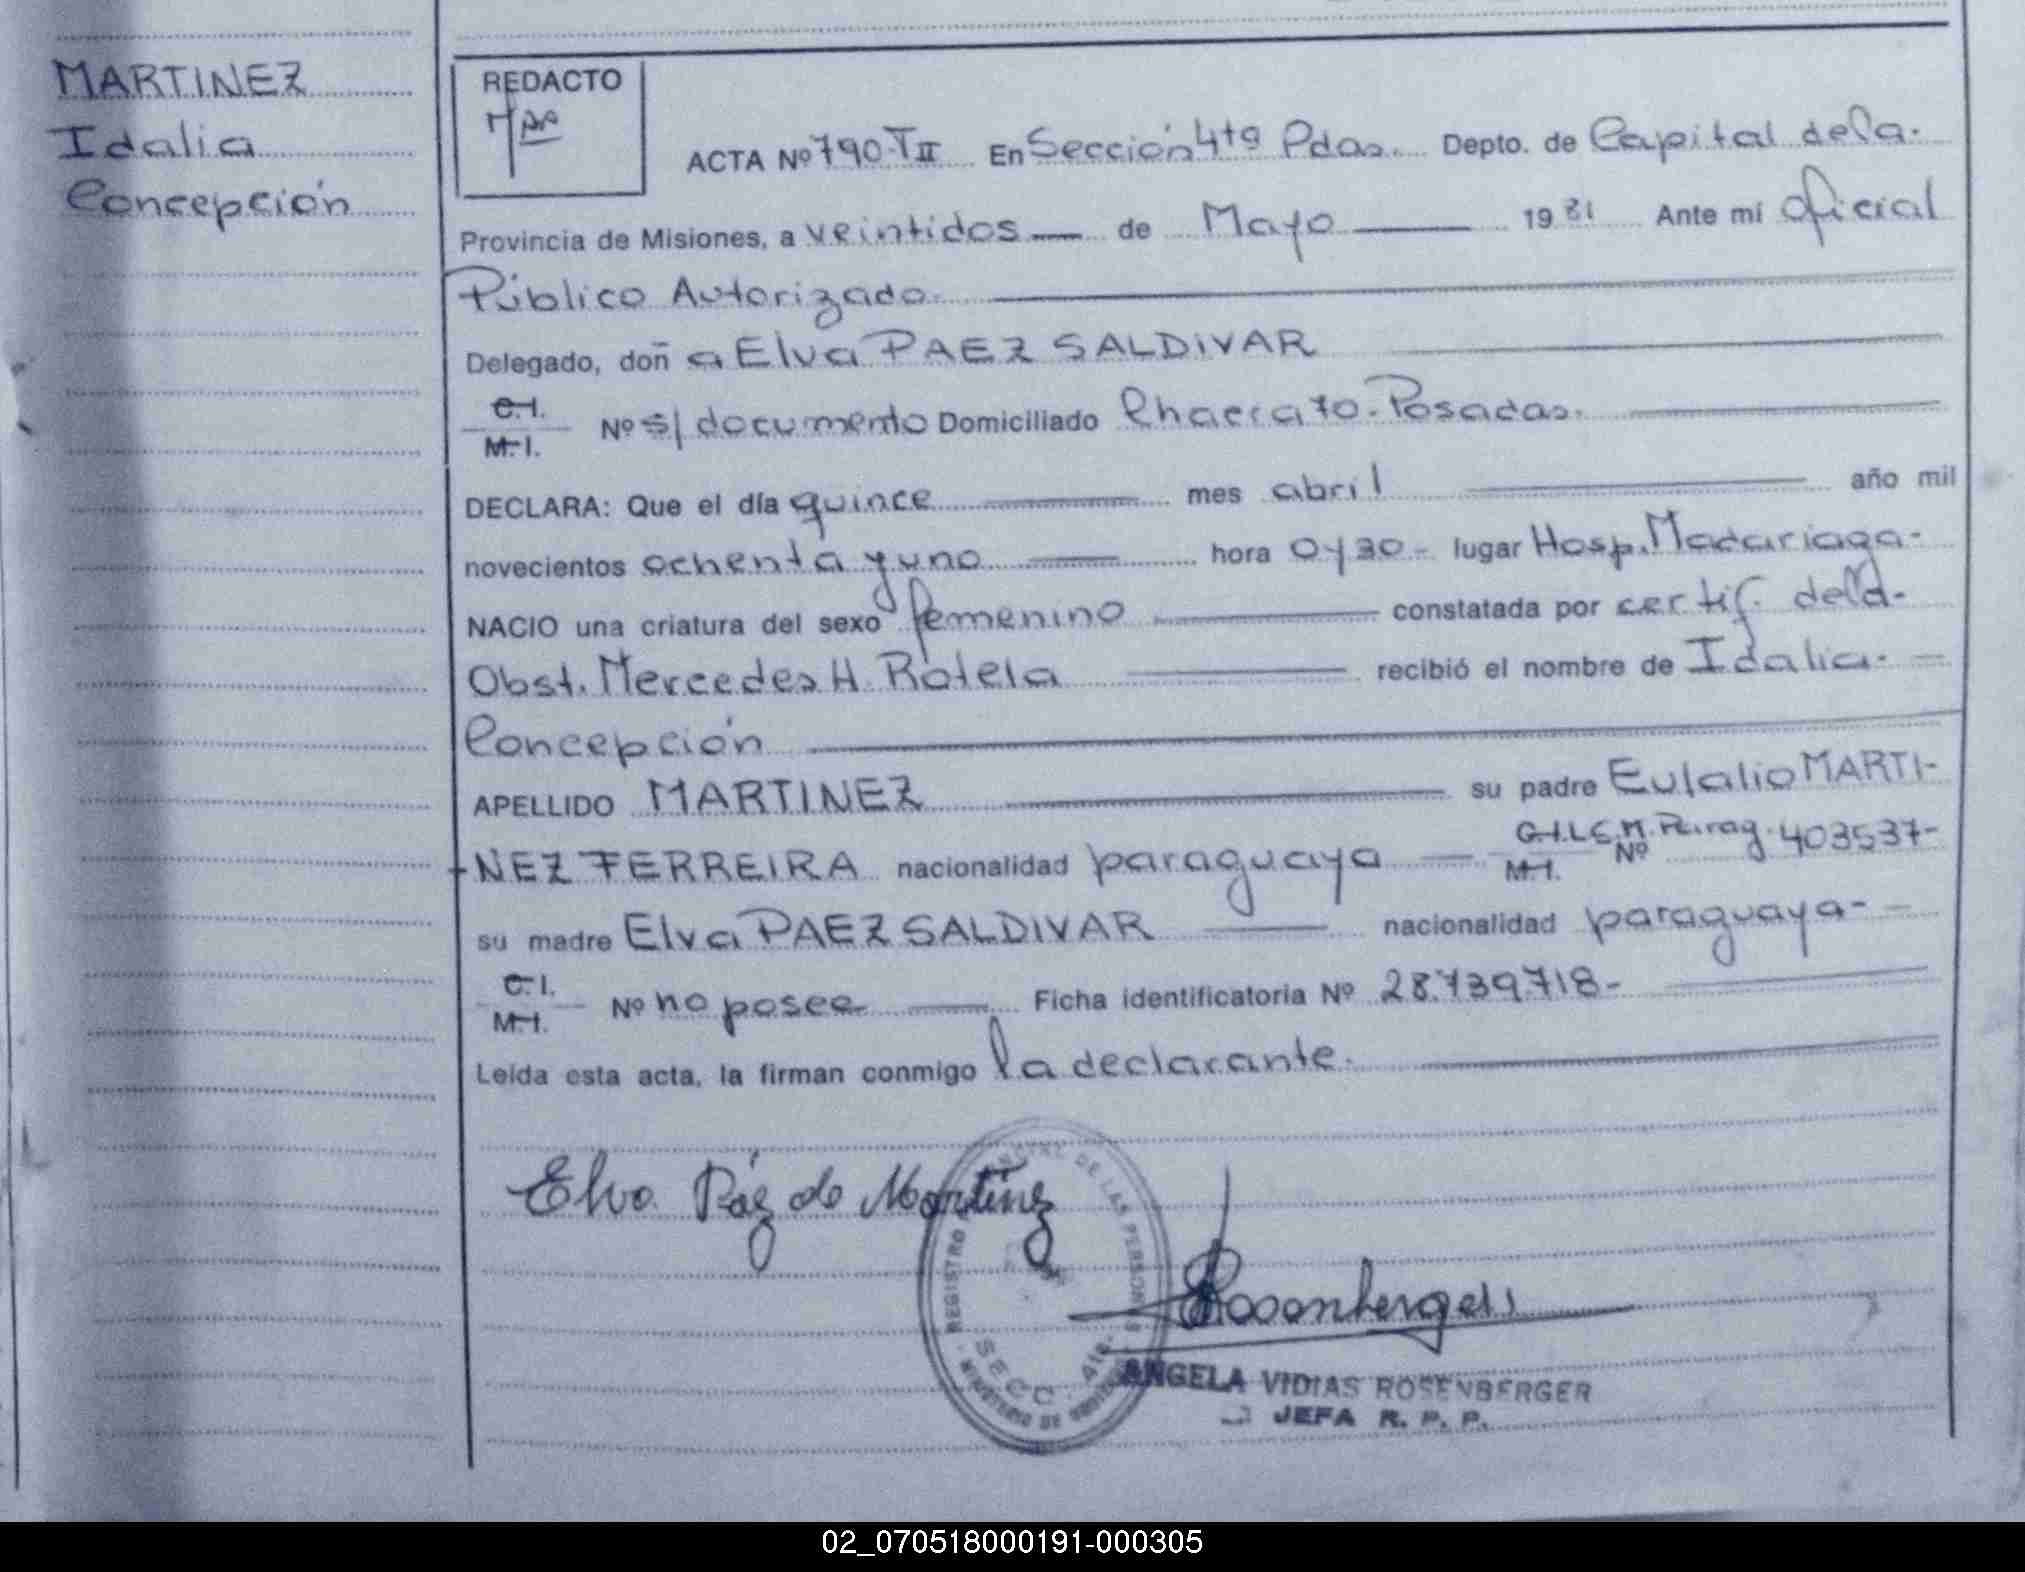 MARTINEZ
Idalia
Concepción
REDACTO
ACTA Nº 790-TII En Sección 4ta Pdas. Depto. de Capital de la-
Provincia de Misiones, a veintidos de Mayo 1981 Ante mí Oficial
Público Autorizado.
Delegado, doñ a Elva PAEZ SALDIVAR
C.I.
M.I. Nº s/documento Domiciliado Chacra 70-Posadas.
DECLARA: Que el día quince mes abril año mil
novecientos ochenta y uno hora 0y30- lugar Hosp. Madariaga-
NACIO una criatura del sexo femenino constatada por certif. dela-
Obst. Mercedes H. Rotela recibió el nombre de Idalia-
Concepción
APELLIDO MARTINEZ su padre Eulalio MARTI-
NEZ FERREIRA nacionalidad paraguaya C.I. M.I. Nº 403537-
su madre Elva PAEZ SALDIVAR nacionalidad paraguaya-
C.I.
M.I. Nº no posee Ficha identificatoria Nº 28.739.718-
Leída esta acta, la firman conmigo la declarante.
Elva Páez de Martínez
REGISTRO DE LAS PERSONAS
SECC. 4ta.
MINISTERIO DE
Rosenberger
ANGELA VIDIAS ROSENBERGER
JEFA R. P. P.
02_070518000191-000305